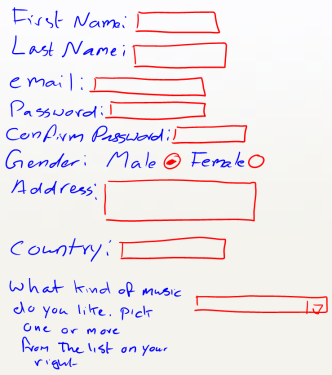 First Name:
Last Name:
email:
Password:
Confirm Password:
Gender: Male Female
Address:
Country:
What kind of music
do you like. pick
one or more
from the list on your
right